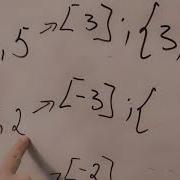 , 5 → [3] ; { 3,
, 2 → [-3] ; {
→ [-2]